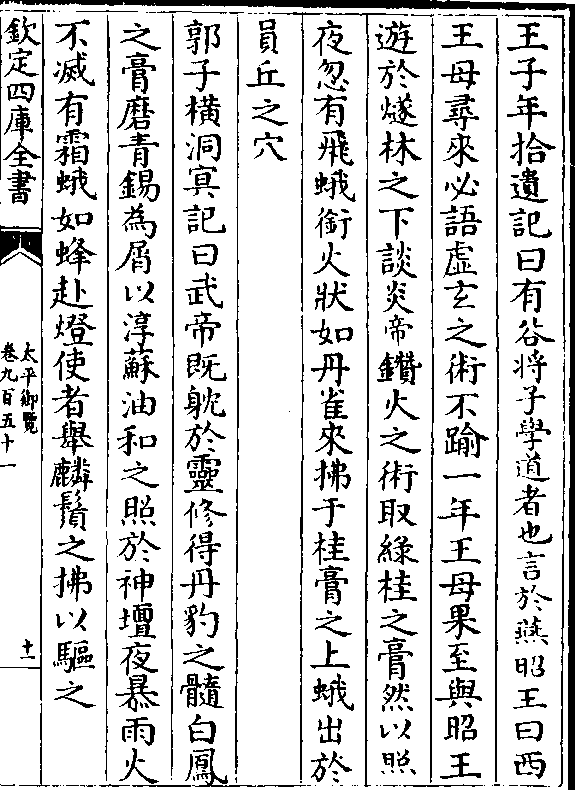 王子年拾遺記曰有谷将子學道者也言於燕昭王曰西
王母尋來必語虛玄之術不踰一年王母果至與昭王
遊於燧林之下談炎帝鑽火之術取綠桂之膏然以照
夜忽有飛蛾銜火狀如丹雀來拂于桂膏之上蛾出於
員丘之穴
郭子橫洞冥記曰武帝既躭於靈修得丹豹之髓白鳳
之膏磨青錫為屑以淳蘇油和之照於神壇夜暴雨火
不滅有霜蛾如蜂赴燈使者舉麟鬚之拂以驅之
欽定四庫全書
太平御覽
卷九百五十一
十一